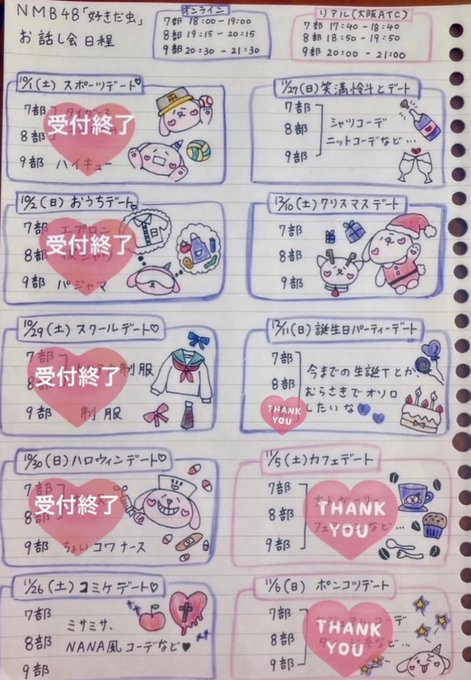 NMB48「好きだ虫」
お話し会日程
オンライン
7部 18:00-19:00
8部 19:15-20:15
9部 20:30-21:30
リアル(大阪ATC)
7部 17:40-18:40
8部 18:50-19:50
9部 20:00-21:00
10/1(土)スポーツデート♡
7部
受付終了
8部
9部 ハイキュー
10/2(日)おうちデート♡
7部 エプロン
受付終了
8部
9部 パジャマ
10/29(土)スクールデート♡
7部
8部 制服
受付終了
9部 制服
10/30(日)ハロウィンデート♡
7部
受付終了
8部
9部 ちょいコワナース
11/26(土)コミケデート♡
7部
8部
9部
ミサミサ、
NANA風コーデなど♥
11/27(日)笑満怜斗とデート
7部
8部
9部
シャツコーデ
ニットコーデなど…
12/10(土)クリスマスデート
7部
8部
9部
12/11(日)誕生日パーティーデート
7部
8部
9部
今までの生誕Tとか、
むらさきでオソロ
したいな
THANK
YOU
11/5(土)カフェデート
7部
8部
9部
THANK
YOU
11/6(日)ポンコツデート
7部
8部
9部
THANK
YOU